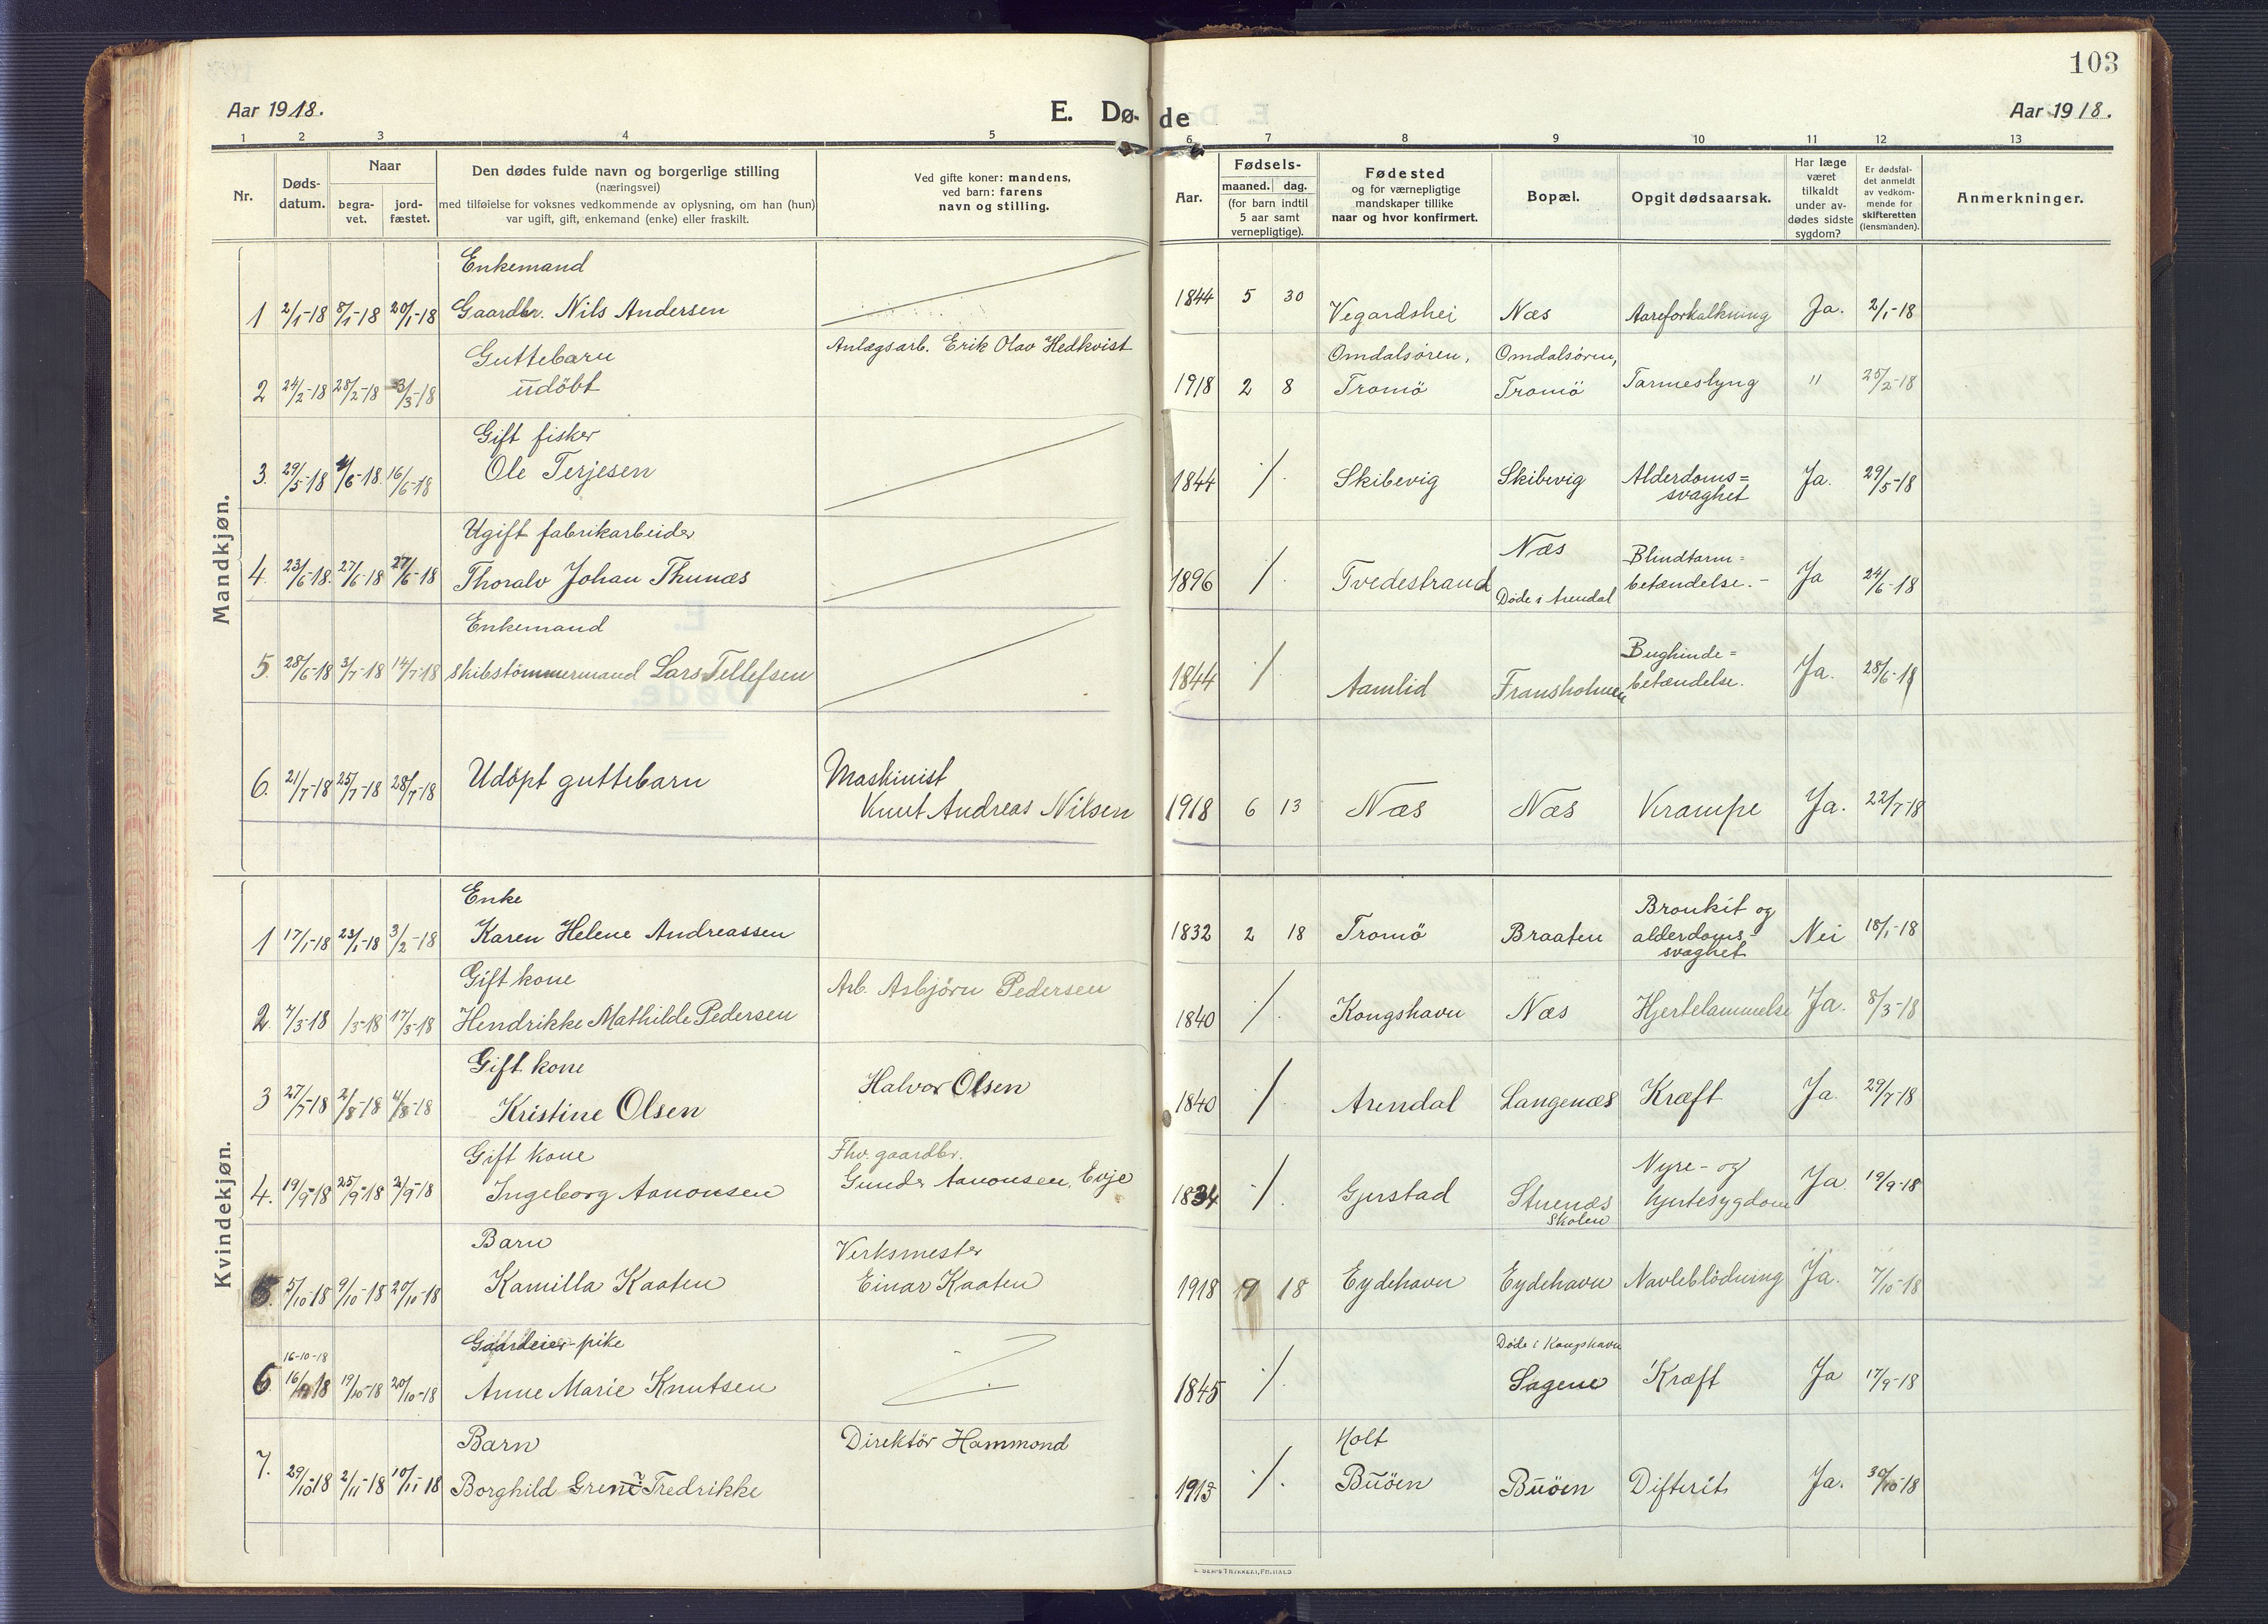 103
Aar 1918.
E. Dø-de
Aar 1918.
1 2 3 4 5 6 7 8 9 10 11 12 13
Nr.
Døds-
datum.
Naar
begra-
vet.
jord-
fæstet.
Den dødes fulde navn og borgerlige stilling
(næringsvei)
med tilføielse for voksnes vedkommende av oplysning, om han (hun)
var ugift, gift, enkemand (enke) eller fraskilt.
Ved gifte koner: mandens,
ved barn: farens
navn og stilling.
Aar.
Fødsels-
maaned. dag.
(for barn indtil
5 aar samt
vernepligtige).
Fødested
og for værnepligtige
mandskaper tillike
naar og hvor konfirmert.
Bopæl.
Opgit dødsaarsak.
Har læge
været
tilkaldt
under av-
dødes sidste
sygdom?
Er dødsfal-
det anmeldt
av vedkom-
mende for
skifteretten
(lensmanden).
Anmerkninger.
Mandkjøn.
Enkemand
1 2/1-18 8/1-18 20/1-18 Gaardbr. Nils Andersen 1844 5 30 Vegardshei Næs Aareforkalkning Ja. 2/1-18
Guttebarn Anlægsarb. Erik Olav Hedkvist Omdalsøren, Omdalsøren,
2 24/2-18 28/2-18 3/3-18 udöbt 1918 2 8 Tromö Tromö Tarmeslyng " 25/2-18
Gift fisker
3. 29/5-18 4/6-18. 16/6-18 Ole Terjesen 1844 ./. Skibevig Skibevig Alderdoms= Ja. 29/5-18
svaghet
Ugift fabrikarbeider Næs Blindtarm=
4. 23/6-18. 27/6-18 27/6-18 Thoralv Johan Thunæs 1896 ./. Tvedestrand Døde i Arendal betændelse.- Ja 24/6-18
Enkemand Bughinde=
5. 28/6-18 3/7-18 14/7-18 skibstömmermand Lars Tellefsen 1844 ./. Aamlid Fransholmen betændelse. Ja. 28/6-18
Maskinist
6. 21/7-18 25/7-18 28/7-18 Udöpt guttebarn Knut Andreas Nilsen 1918 6 13 Næs Næs Krampe Ja. 22/7-18
Kvindekjøn.
Enke Bronkit og
1 17/1-18 23/1-18 3/2-18 Karen Helene Andreassen 1832 2 18 Tromö Braaten alderdoms- Nei 18/1-18
svaghet
Gift kone Arb. Asbjörn Pedersen
2. 7/3-18 /3-18 17/3-18 Hendrikke Mathilde Pedersen 1840 ./. Kongshavn Næs Hjertelammelse Ja. 8/3-18
Gift kone
3 27/7-18 2/8-18 4/8-18 Kristine Olsen Halvor Olsen 1840 ./. Arendal Langenæs Kræft Ja. 29/7-18
Gift kone Fhv. gaardbr. Nyre- og
4. 19/9-18 25/9-18 2/9-18 Ingeborg Aanonsen Gunder Aanonsen, Evje 1834 ./. Gjerstad Stuenæs hjertesygdom Ja 19/9-18
Skolen
Barn Verksmester
5. 5/10-18 9/10-18 20/10-18 Kamilla Kaaten Einar Kaaten 1918 9 18 Eydehavn Eydehavn Navleblödning Ja. 7/10-18
16-10-18 Gaardeier-pike Døde i Kongshavn
6. 16/ 18 19/10-18 20/10-18 Anne Marie Knutsen 1845 ./. Sagene Kræft Ja 17/9-18
Barn Direktör Hammond Holt
7. 29/10-18 2/11-18 10/11 18 Borghild Grene Fredrikke 1913 ./. Buöen Buöen Difterit. Ja. 30/10-18